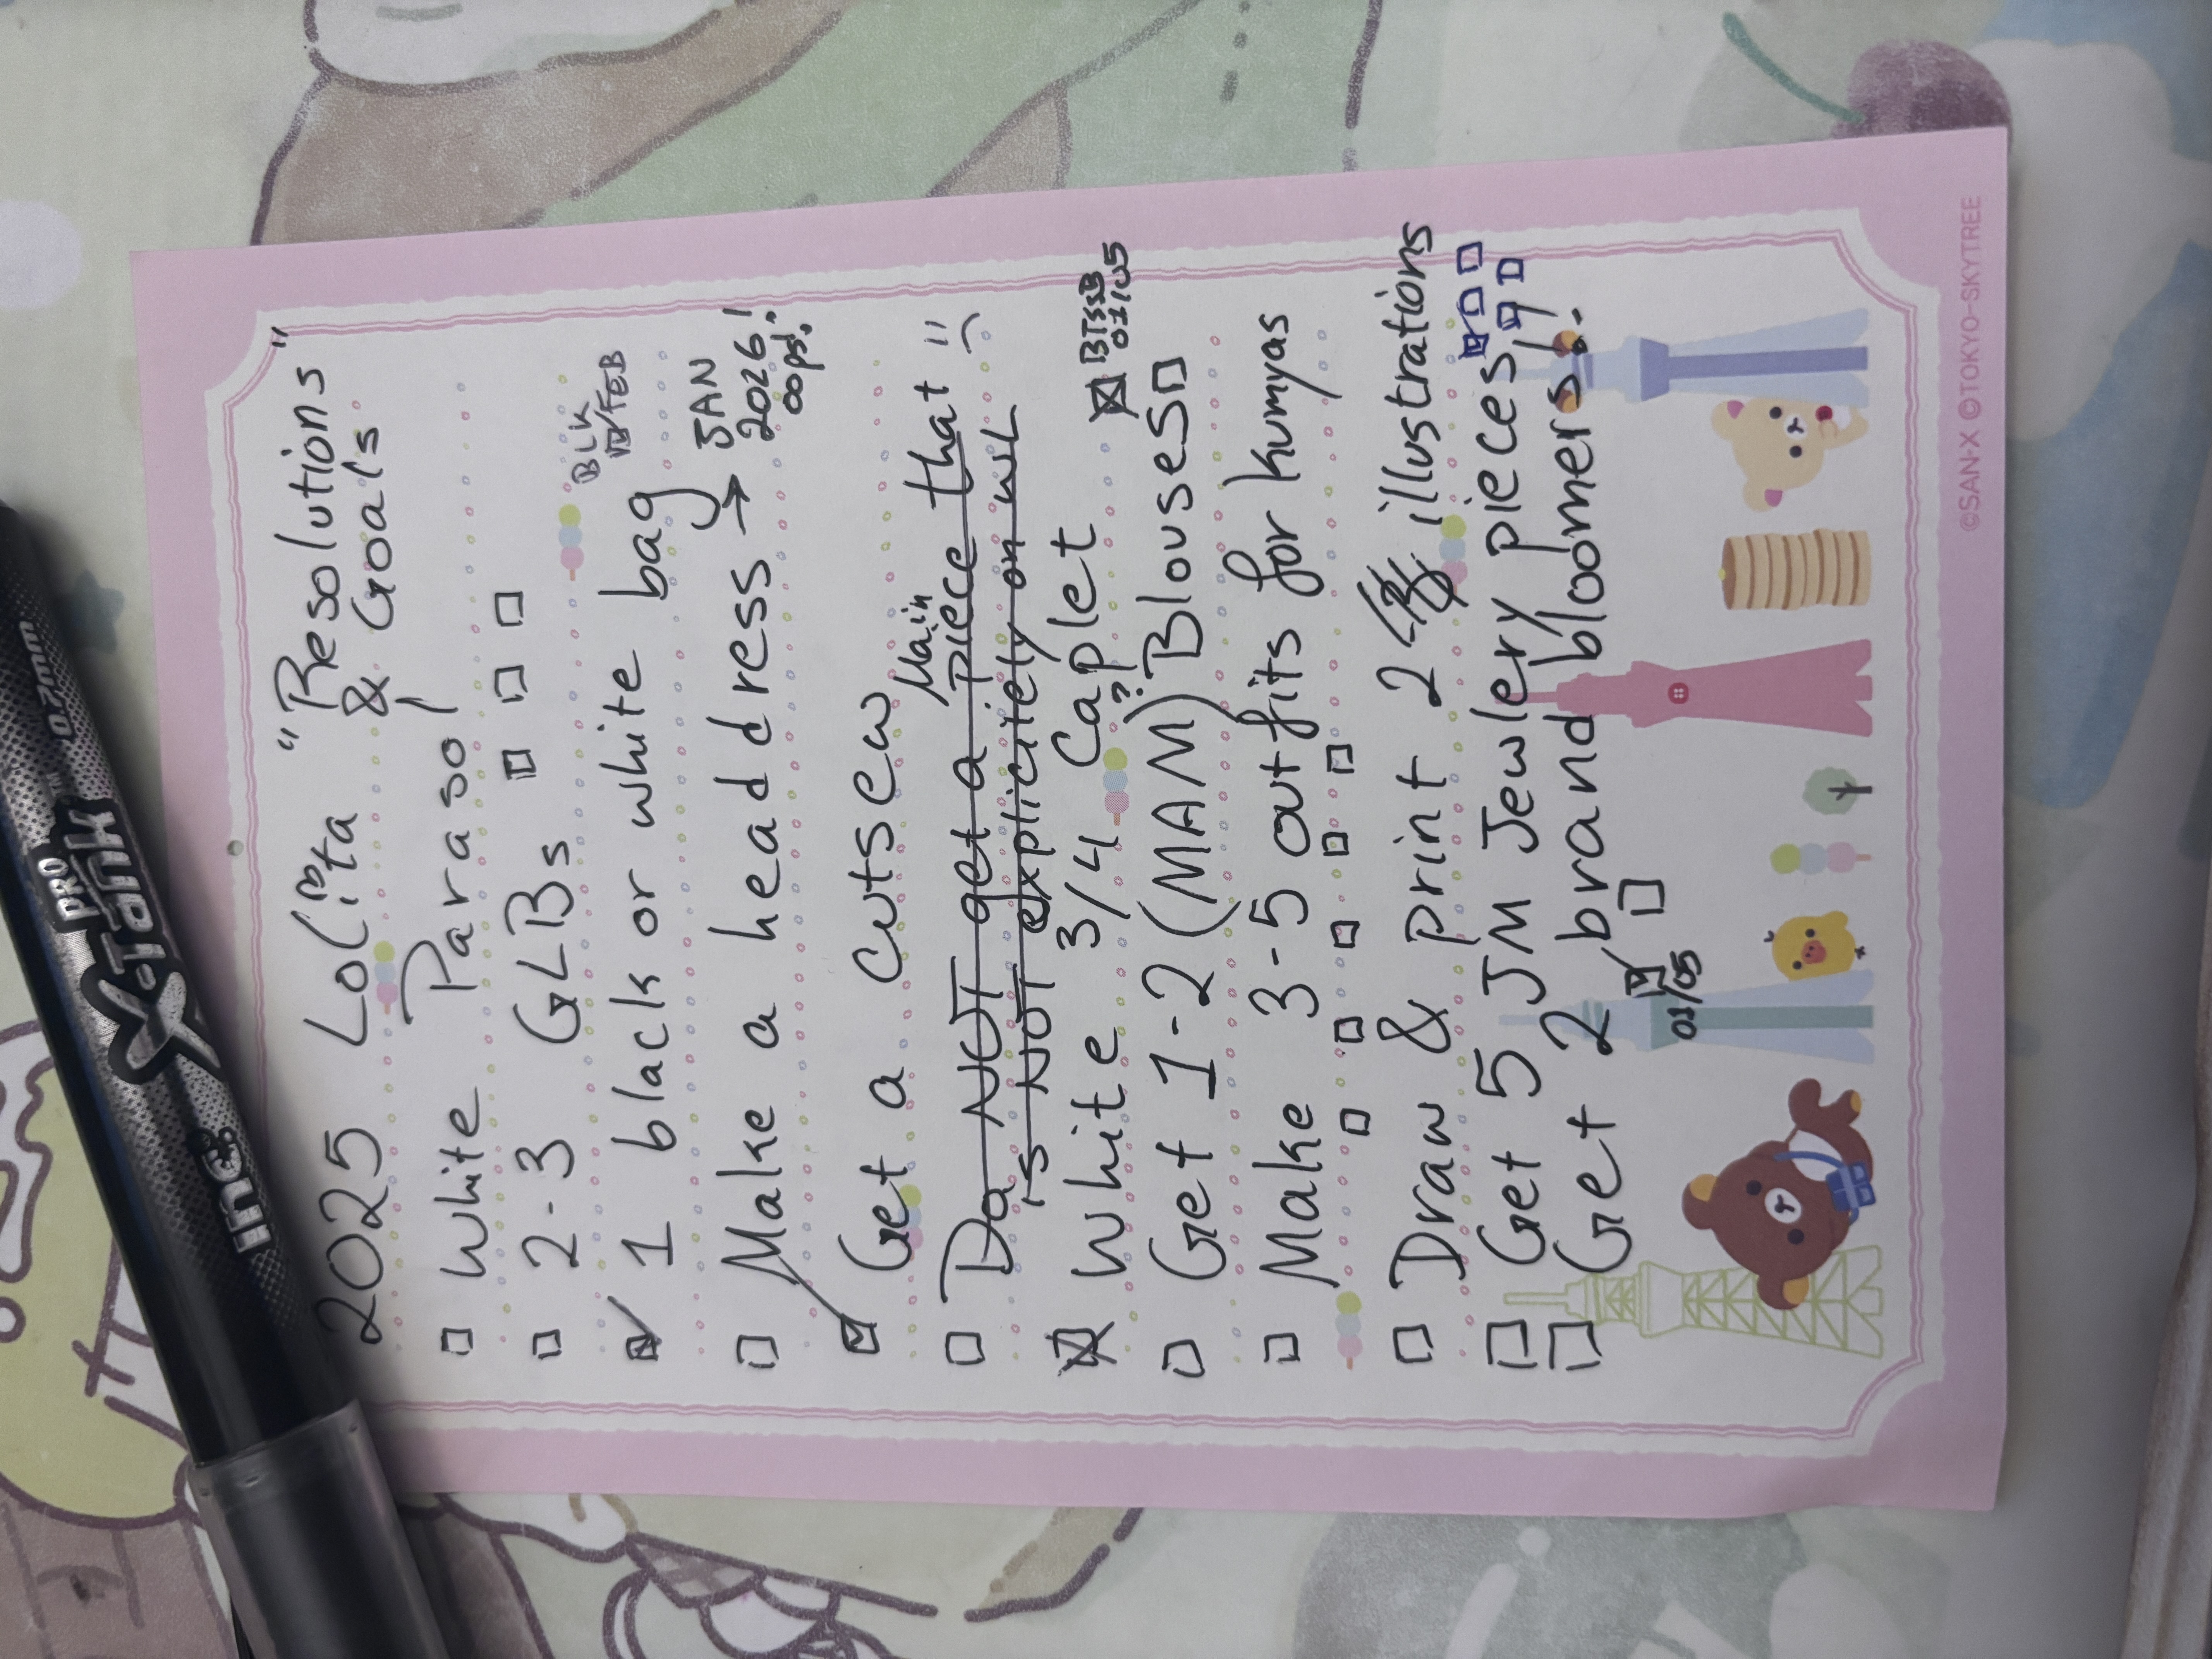 2025 Lolita "Resolutions"
& Goals
☐ White Parasol
☐ 2-3 GLBs
☑ 1 black or white bag BLK FEB
☐ Make a headdress → JAN 2026! oops!
☑ Get a cutsew
☐ Do NOT get a Main piece that "
is NOT explicitely on WL
☒ White 3/4 Caplet ? ☒ BTSSB 01/05
☐ Get 1-2 (MAM) Blouses ☐
☐ Make 3-5 outfits for kumyas
☐ Draw & print 2 illustrations
☐ Get 5 JM Jewlery pieces!
☐ Get 2 brand bloomers!
01/05
©SAN-X ©TOKYO-SKYTREE
inc. PRO X-Tank 0.7mm